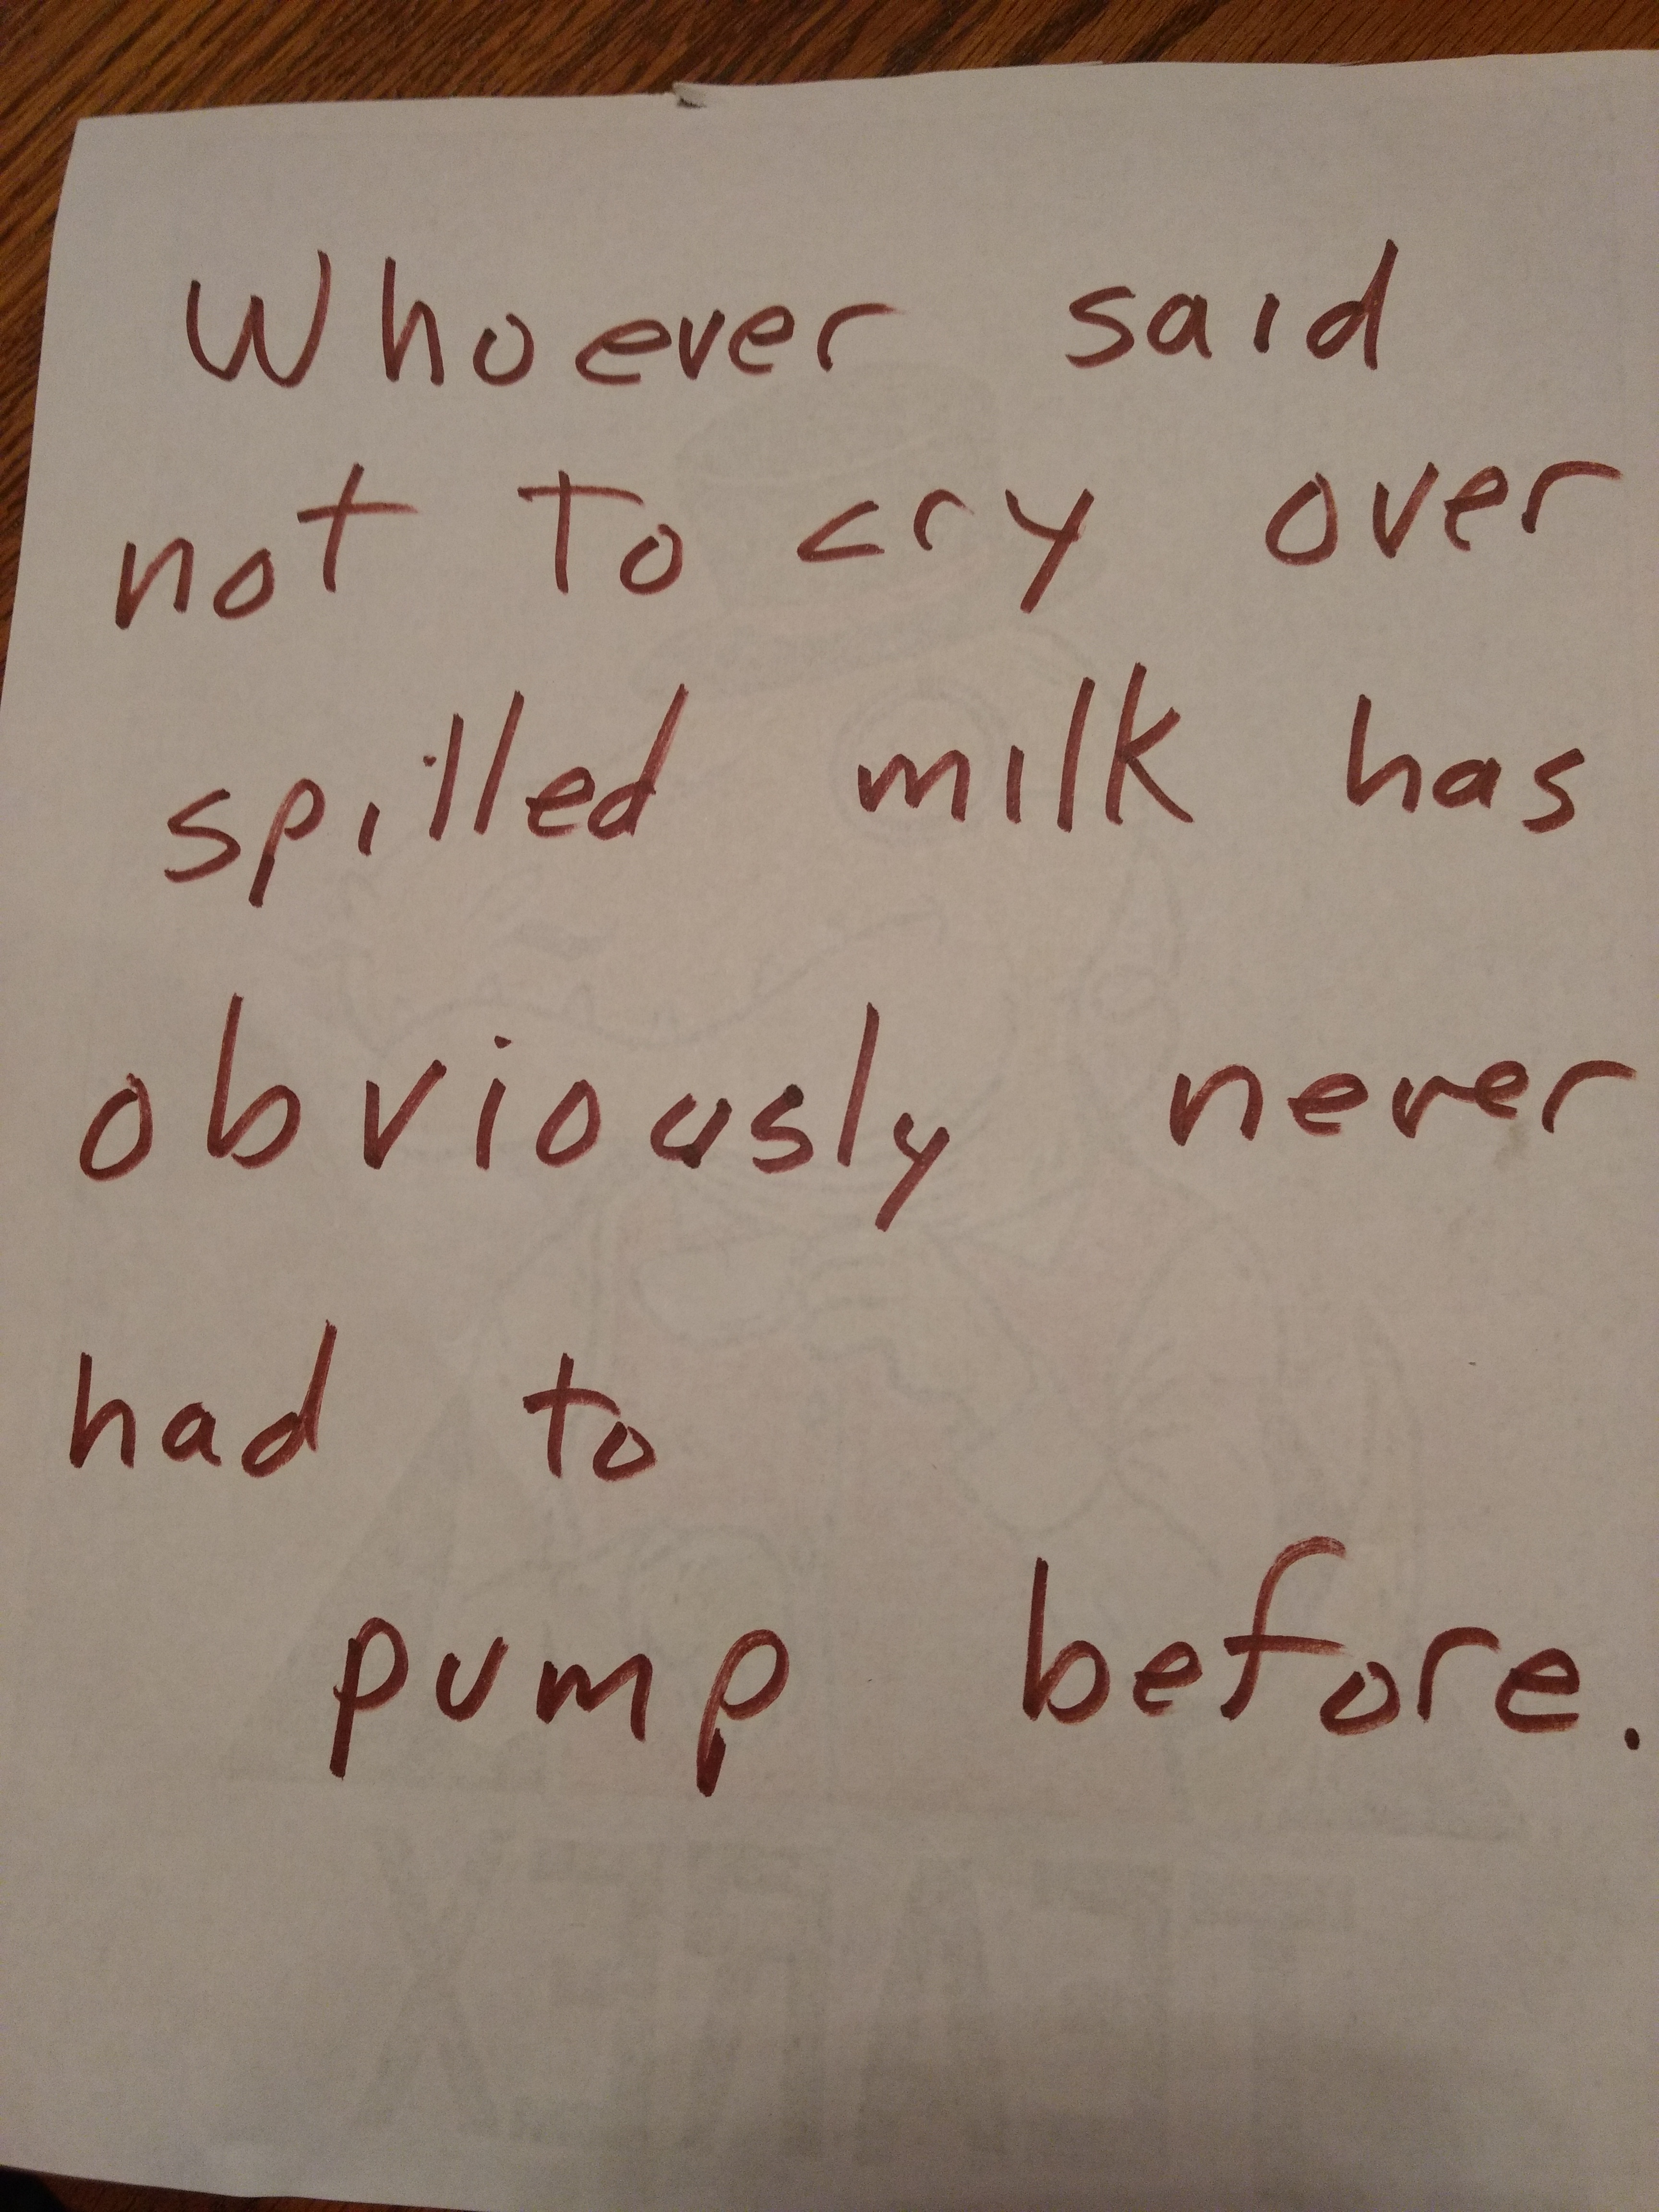 Whoever said
not to cry over
spilled milk has
obviously never
had to
pump before.